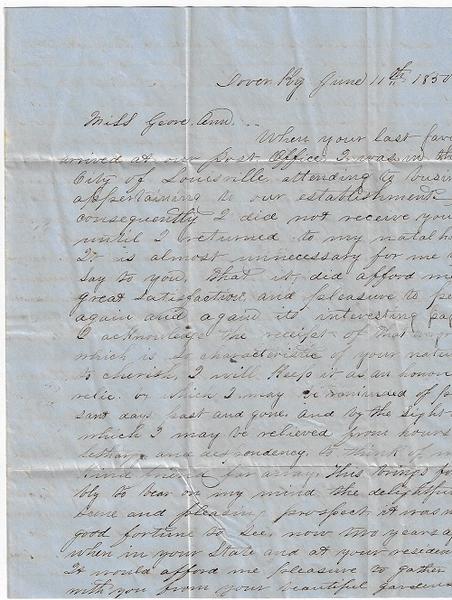 Dover Ky June 11th 1850
Miss Geore. Ann. ..
When your last favo
arrived at our Post Office, I was in th
City of Louisville attending to busin
appertaining to our establishment
consequently I did not receive you
until I returned to my natal ho
It is almost unnecessary for me
say to you, that it did afford me
great satisfaction, and pleasure to pe
again and again its interesting pag
I acknowledge the receipt of that
which is so characteristic of your natu
to cherish, I will keep it as an honor
relic. by which I may be reminded of
sant days past and gone. and by the sight
which I may be relieved from hours
lethargy and despondency. to think of
kind friend far away. This brings for
bly to bear on my mind the delightful
scene and pleasing prospect it was m
good fortune to see, now two years a
when in your State and at your residen
It would afford me pleasure to gather
with you from your beautiful gardens